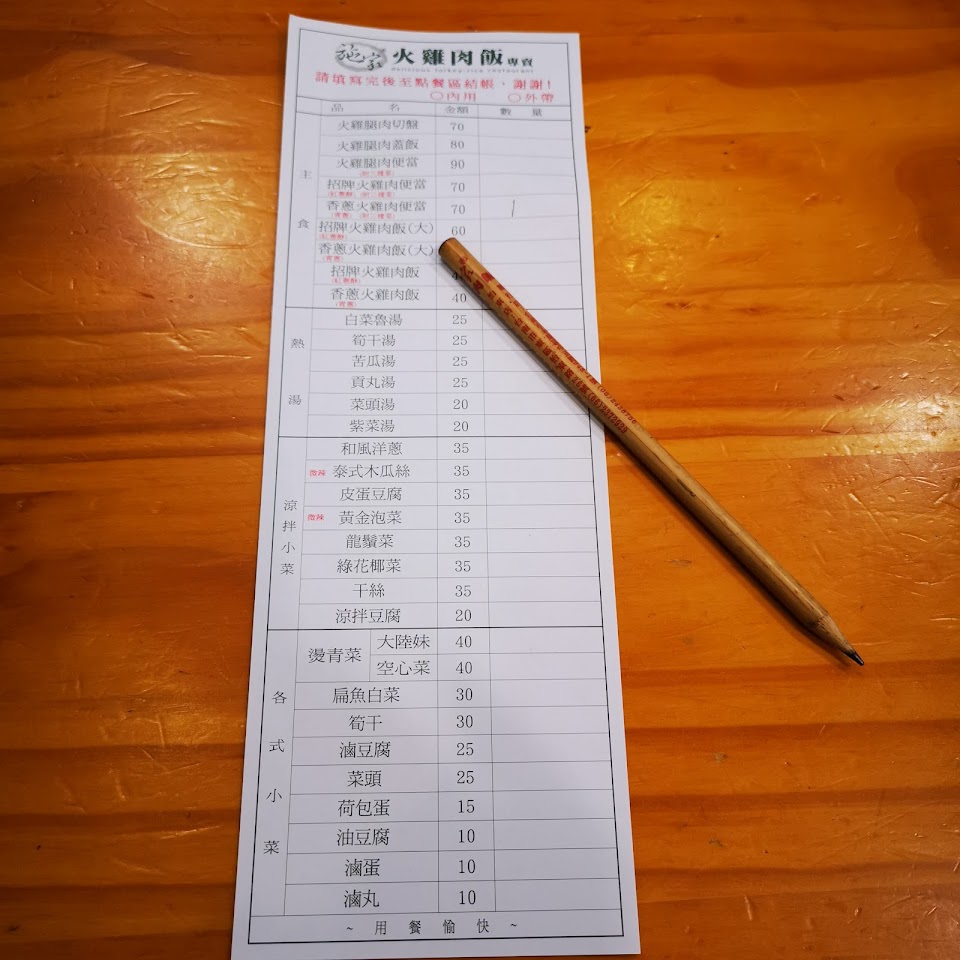 施家 火雞肉飯專賣
delicious turkey rice restaurant
請填寫完後至點餐區結帳，謝謝！
○內用 ○外帶
品名 金額 數量
主食
火雞腿肉切盤 70
火雞腿肉蓋飯 80
火雞腿肉便當 90
(附三樣菜)
招牌火雞肉便當 70
(紅蔥酥) (附三樣菜)
香蔥火雞肉便當 70 1
(青蔥) (附三樣菜)
招牌火雞肉飯(大) 60
(紅蔥酥)
香蔥火雞肉飯(大)
(青蔥)
招牌火雞肉飯
(紅蔥酥)
香蔥火雞肉飯 40
(青蔥)
熱湯
白菜魯湯 25
筍干湯 25
苦瓜湯 25
貢丸湯 25
菜頭湯 20
紫菜湯 20
涼拌小菜
和風洋蔥 35
微辣 泰式木瓜絲 35
皮蛋豆腐 35
微辣 黃金泡菜 35
龍鬚菜 35
綠花椰菜 35
干絲 35
涼拌豆腐 20
各式小菜
燙青菜 大陸妹 40
空心菜 40
扁魚白菜 30
筍干 30
滷豆腐 25
菜頭 25
荷包蛋 15
油豆腐 10
滷蛋 10
滷丸 10
~ 用餐愉快 ~